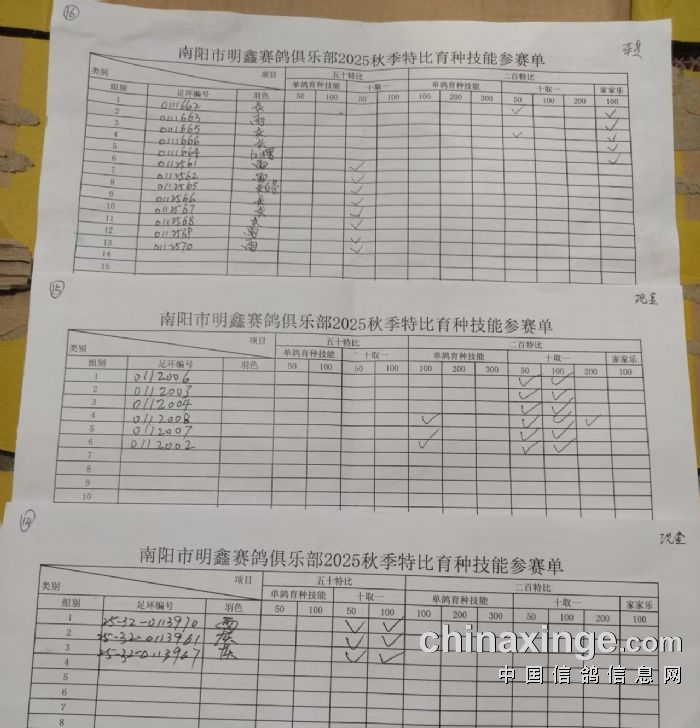 16
南阳市明鑫赛鸽俱乐部2025秋季特比育种技能参赛单
类别 项目 五十特比 二百特比
单鸽育种技能 十取一 单鸽育种技能 十取一 家家乐
组别 足环编号 羽色 50 100 50 100 100 200 300 50 100 200 100
1 0111662 ✓ ✓
2 0111663 雨 ✓
3 0111665 ✓ ✓
4 0111666 ✓
5 0111664 ✓
6 0112561 ✓
7 0112562 ✓
8 0112565 ✓
9 0112566 ✓
10 0112567 ✓
11 0112568 ✓
12 0112569 ✓
13 0112570 ✓
14
15
15
现金
南阳市明鑫赛鸽俱乐部2025秋季特比育种技能参赛单
类别 项目 五十特比 二百特比
单鸽育种技能 十取一 单鸽育种技能 十取一 家家乐
组别 足环编号 羽色 50 100 50 100 100 200 300 50 100 200 100
1 0112006 ✓ ✓
2 0112003 ✓ ✓
3 0112004 ✓ ✓
4 0112008 ✓ ✓ ✓ ✓
5 0112007 ✓ ✓
6 0112002 ✓ ✓ ✓
7
8
9
10
14
现金
南阳市明鑫赛鸽俱乐部2025秋季特比育种技能参赛单
类别 项目 五十特比 二百特比
单鸽育种技能 十取一 单鸽育种技能 十取一 家家乐
组别 足环编号 羽色 50 100 50 100 100 200 300 50 100 200 100
1 25-32-0113970 雨 ✓ ✓
2 25-32-0113961 灰 ✓ ✓
3 25-32-0113967 灰 ✓ ✓
4
5
6
7
8
chinaxinge.com
中国信鸽信息网